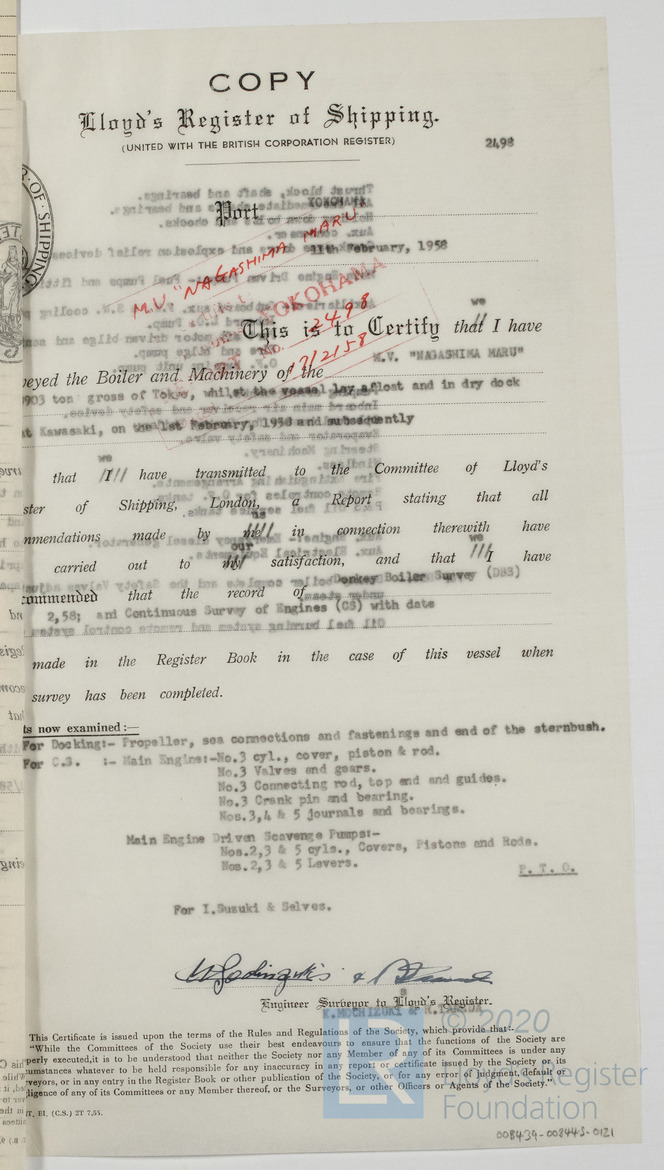 COPY
Lloyd's Register of Shipping.
(UNITED WITH THE BRITISH CORPORATION REGISTER)
2498
Port YOKOHAMA
11th February, 1958
M.V. "NAGASHIMA MARU"
YOKOHAMA
No. 2498
we
This is to Certify that I have
M.V. "NAGASHIMA MARU"
eyed the Boiler and Machinery of the
903 tons gross of Tokyo, whilst the vessel lay afloat and in dry dock
at Kawasaki, on the 1st February, 1958 and subsequently
we
that I have transmitted to the Committee of Lloyd's
ster of Shipping, London, a Report stating that all
us
mmendations made by me in connection therewith have
our we
carried out to my satisfaction, and that I have
commended that the record of Donkey Boiler Survey (DBS)
2,58; and Continuous Survey of Engines (CS) with date
made in the Register Book in the case of this vessel when
survey has been completed.
ts now examined:-
For Docking:- Propeller, sea connections and fastenings and end of the sternbush.
For C.S. :- Main Engine:-No.3 cyl., cover, piston & rod.
No.3 Valves and gears.
No.3 Connecting rod, top end and guides.
No.3 Crank pin and bearing.
Nos.3,4 & 5 journals and bearings.
Main Engine Driven Scavenge Pumps:-
Nos.2,3 & 5 cyls., Covers, Pistons and Rods.
Nos.2,3 & 5 Levers.
P.T.O.
For I.Suzuki & Selves.
Engineer Surveyor to Lloyd's Register.
K.MOCHIZUKI &
This Certificate is issued upon the terms of the Rules and Regulations of the Society, which provide that:-
"While the Committees of the Society use their best endeavours to ensure that the functions of the Society are
perly executed, it is to be understood that neither the Society nor any Member of any of its Committees is under any
umstances whatever to be held responsible for any inaccuracy in any report or certificate issued by the Society or its
veyors, or in any entry in the Register Book or other publication of the Society, or for any error of judgment, default or
ligence of any of its Committees or any Member thereof, or the Surveyors, or other Officers or Agents of the Society."
T, BI. (C.S.) 2T 7,55.
© 2020
Lloyd's Register
Foundation
008439-008445-0121